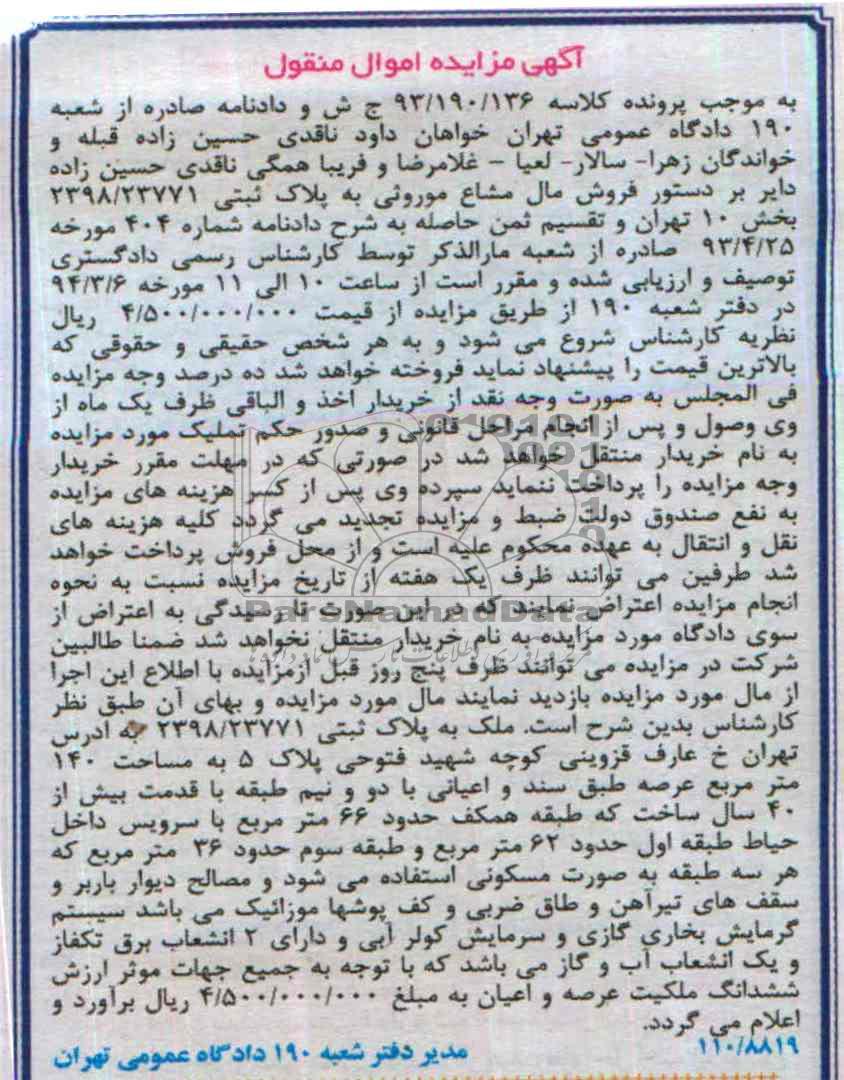 آگهی مزایده اموال منقول
به موجب پرونده کلاسه ۹۳/۱۹۰/۱۳۶ ج ش و دادنامه صادره از شعبه
۱۹۰ دادگاه عمومی تهران خواهان داود ناقدی حسین زاده قبله و
خواندگان زهرا- سالار- لعیا - غلامرضا و فریبا همگی ناقدی حسین زاده
دایر بر دستور فروش مال مشاع موروثی به پلاک ثبتی ۲۳۹۸/۲۳۷۷۱
بخش ۱۰ تهران و تقسیم ثمن حاصله به شرح دادنامه شماره ۴۰۴ مورخه
۹۳/۴/۲۵ صادره از شعبه مارالذکر توسط کارشناس رسمی دادگستری
توصیف و ارزیابی شده و مقرر است از ساعت ۱۰ الی ۱۱ مورخه ۹۴/۳/۶
در دفتر شعبه ۱۹۰ از طریق مزایده از قیمت ۴/۵۰۰/۰۰۰/۰۰۰ ریال
نظریه کارشناس شروع می شود و به هر شخص حقیقی و حقوقی که
بالاترین قیمت را پیشنهاد نماید فروخته خواهد شد ده درصد وجه مزایده
فی المجلس به صورت وجه نقد از خریدار اخذ و الباقی ظرف یک ماه از
وی وصول و پس از انجام مراحل قانونی و صدور حکم تملیک مورد مزایده
به نام خریدار منتقل خواهد شد در صورتی که در مهلت مقرر خریدار
وجه مزایده را پرداخت ننماید سپرده وی پس از کسر هزینه های مزایده
به نفع صندوق دولت ضبط و مزایده تجدید می گردد کلیه هزینه های
نقل و انتقال به عهده محکوم علیه است و از محل فروش پرداخت خواهد
شد طرفین می توانند ظرف یک هفته از تاریخ مزایده نسبت به نحوه
انجام مزایده اعتراض نمایند که در این صورت تا رسیدگی به اعتراض از
سوی دادگاه مورد مزایده به نام خریدار منتقل نخواهد شد ضمنا طالبین
شرکت در مزایده می توانند ظرف پنج روز قبل ازمزایده با اطلاع این اجرا
از مال مورد مزایده بازدید نمایند مال مورد مزایده و بهای آن طبق نظر
کارشناس بدین شرح است. ملک به پلاک ثبتی ۲۳۹۸/۲۳۷۷۱ به ادرس
تهران خ عارف قزوینی کوچه شهید فتوحی پلاک ۵ به مساحت ۱۴۰
متر مربع عرصه طبق سند و اعیانی با دو و نیم طبقه با قدمت بیش از
۴۰ سال ساخت که طبقه همکف حدود ۶۶ متر مربع با سرویس داخل
حیاط طبقه اول حدود ۶۲ متر مربع و طبقه سوم حدود ۳۶ متر مربع که
هر سه طبقه به صورت مسکونی استفاده می شود و مصالح دیوار باربر و
سقف های تیرآهن و طاق ضربی و کف پوشها موزائیک می باشد سیستم
گرمایش بخاری گازی و سرمایش کولر آبی و دارای ۲ انشعاب برق تکفاز
و یک انشعاب آب و گاز می باشد که با توجه به جمیع جهات موثر ارزش
ششدانگ ملکیت عرصه و اعیان به مبلغ ۴/۵۰۰/۰۰۰/۰۰۰ ریال برآورد و
اعلام می گردد.
۱۱۰/۸۸۱۹ مدیر دفتر شعبه ۱۹۰ دادگاه عمومی تهران
ParsNamadData